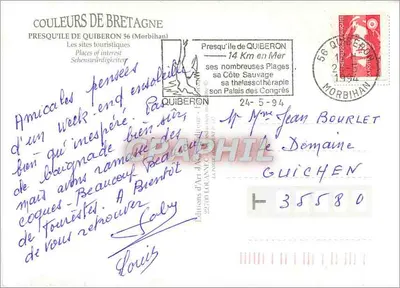 COULEURS DE BRETAGNE
PRESQU'ILE DE QUIBERON 56 (Morbihan)
Les sites touristiques
Places of interest
Sehenswürdigkeiten
Presqu'île de QUIBERON
14 Km en Mer
ses nombreuses Plages
sa Côte Sauvage
sa thalassothérapie
son Palais des Congrès
QUIBERON
24-5-94
56 QUIBERON
24-5
1994
MORBIHAN
Amicales pensées
d'un week-end ensoleillé
bien qu'inespéré. Pas
de baignade bien sûr,
mais avons ramassé des
coques. Beaucoup
de touristes. A Bientôt
de vous retrouver.
Louis
M. Mme Jean BOURLET
le Domaine
GUICHEN
T 35580
Editions d'Art
CPAPHIL